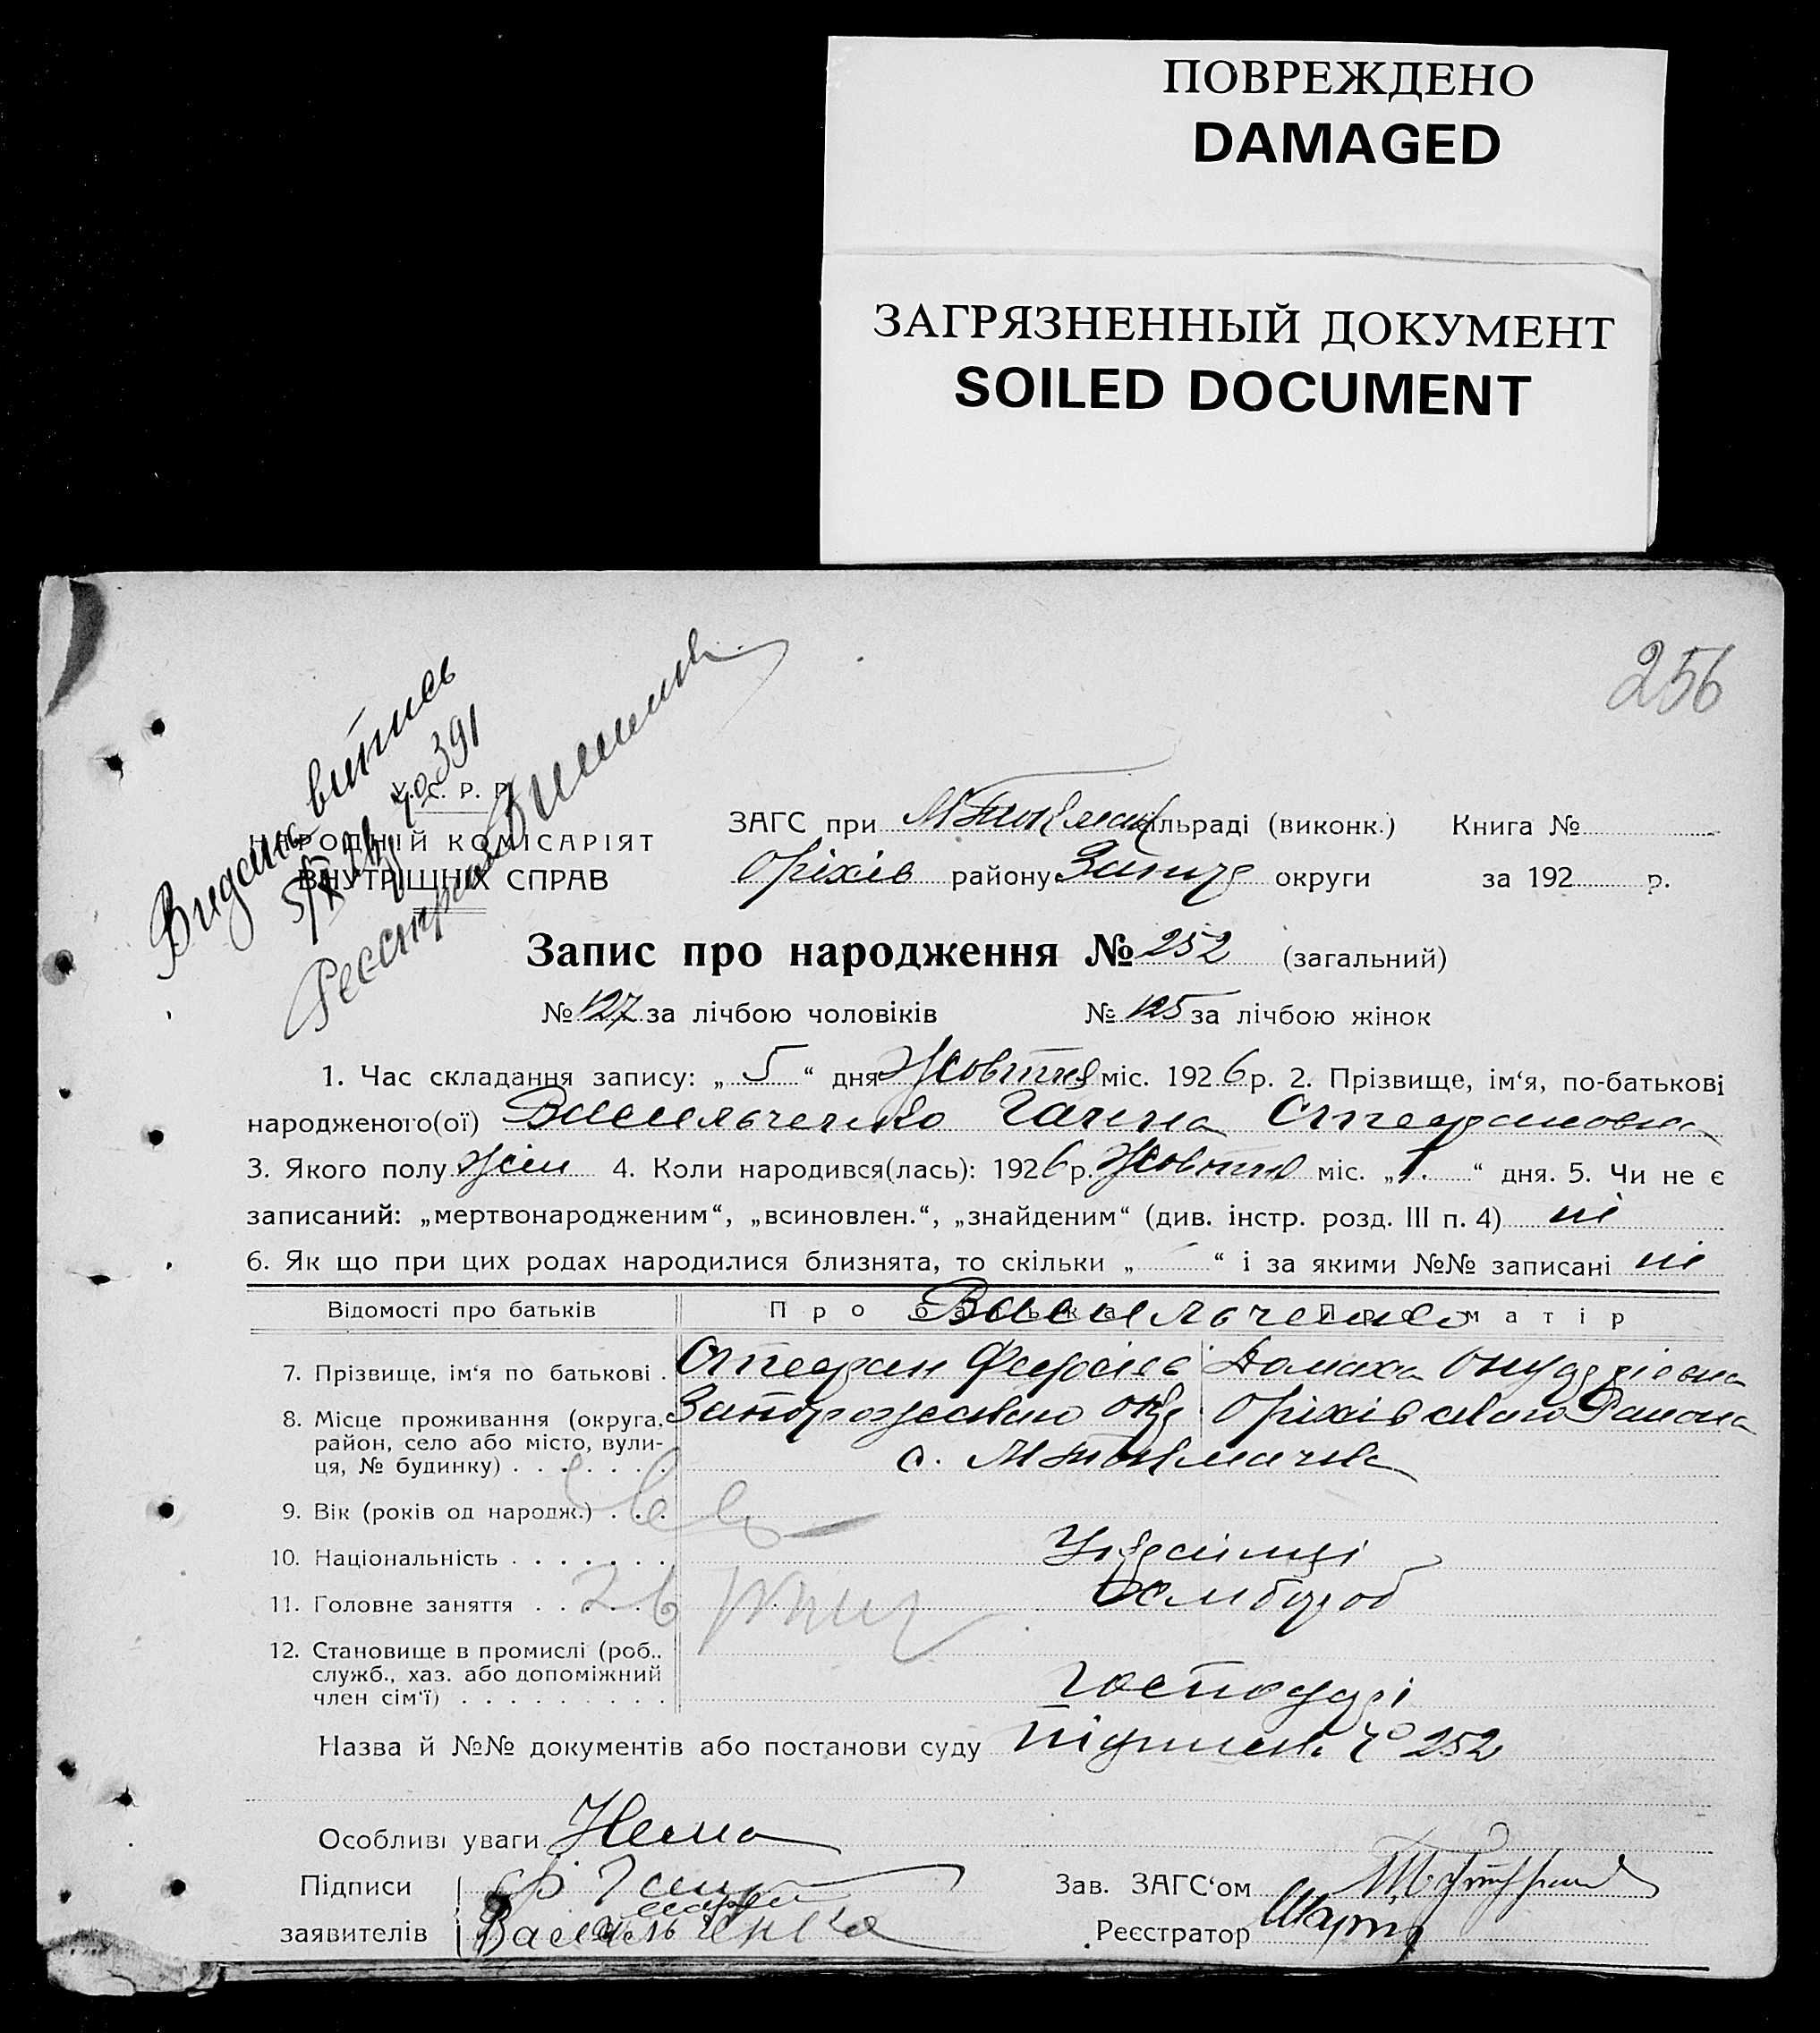 ПОВРЕЖДЕНО
DAMAGED
ЗАГРЯЗНЕННЫЙ ДОКУМЕНТ
SOILED DOCUMENT
256
Видана витпись
№ 391
Реєстратор
У. С. Р. Р.
НАРОДНІЙ КОМІСАРІЯТ
ВНУТРІШНІХ СПРАВ
ЗАГС при М Токмац ільраді (виконк.) Книга №
Оріхів району округи за 192 р.
Запис про народження № 252 (загальний)
№ 127 за лічбою чоловіків № 125 за лічбою жінок
1. Час складання запису: „ 5 “ дня Жовтня міс. 1926 р. 2. Прізвище, ім‘я, по-батькові
народженого(ої) Васильченко Ганна Стефановна
3. Якого полу Жін 4. Коли народився(лась): 1926 р. Жовтня міс. „ 1. “ дня. 5. Чи не є
записаний: „мертвонародженим“, „всиновлен.“, „знайденим“ (див. інстр. розд. III п. 4) ні
6. Як що при цих родах народилися близнята, то скільки „ “ і за якими №№ записані ні
Відомості про батьків Про батька Васильченко Про матір
7. Прізвище, ім‘я по батькові . Стефан Домаха
8. Місце проживання (округа, Оріхівського Района
район, село або місто, вули-
ця, № будинку) . . . . . . . с. М Токмачка
9. Вік (років од народж.) . . .
10. Національність . . . . . . . Українці
11. Головне заняття . . . . . . 26 Хлибороб
12. Становище в промислі (роб..
служб., хаз. або допоміжний
член сім‘ї) . . . . . . . . . Господарі
Назва й №№ документів або постанови суду № 252
Особливі уваги Нема
Підписи
заявителів Васильченко
Зав. ЗАГС‘ом
Реєстратор